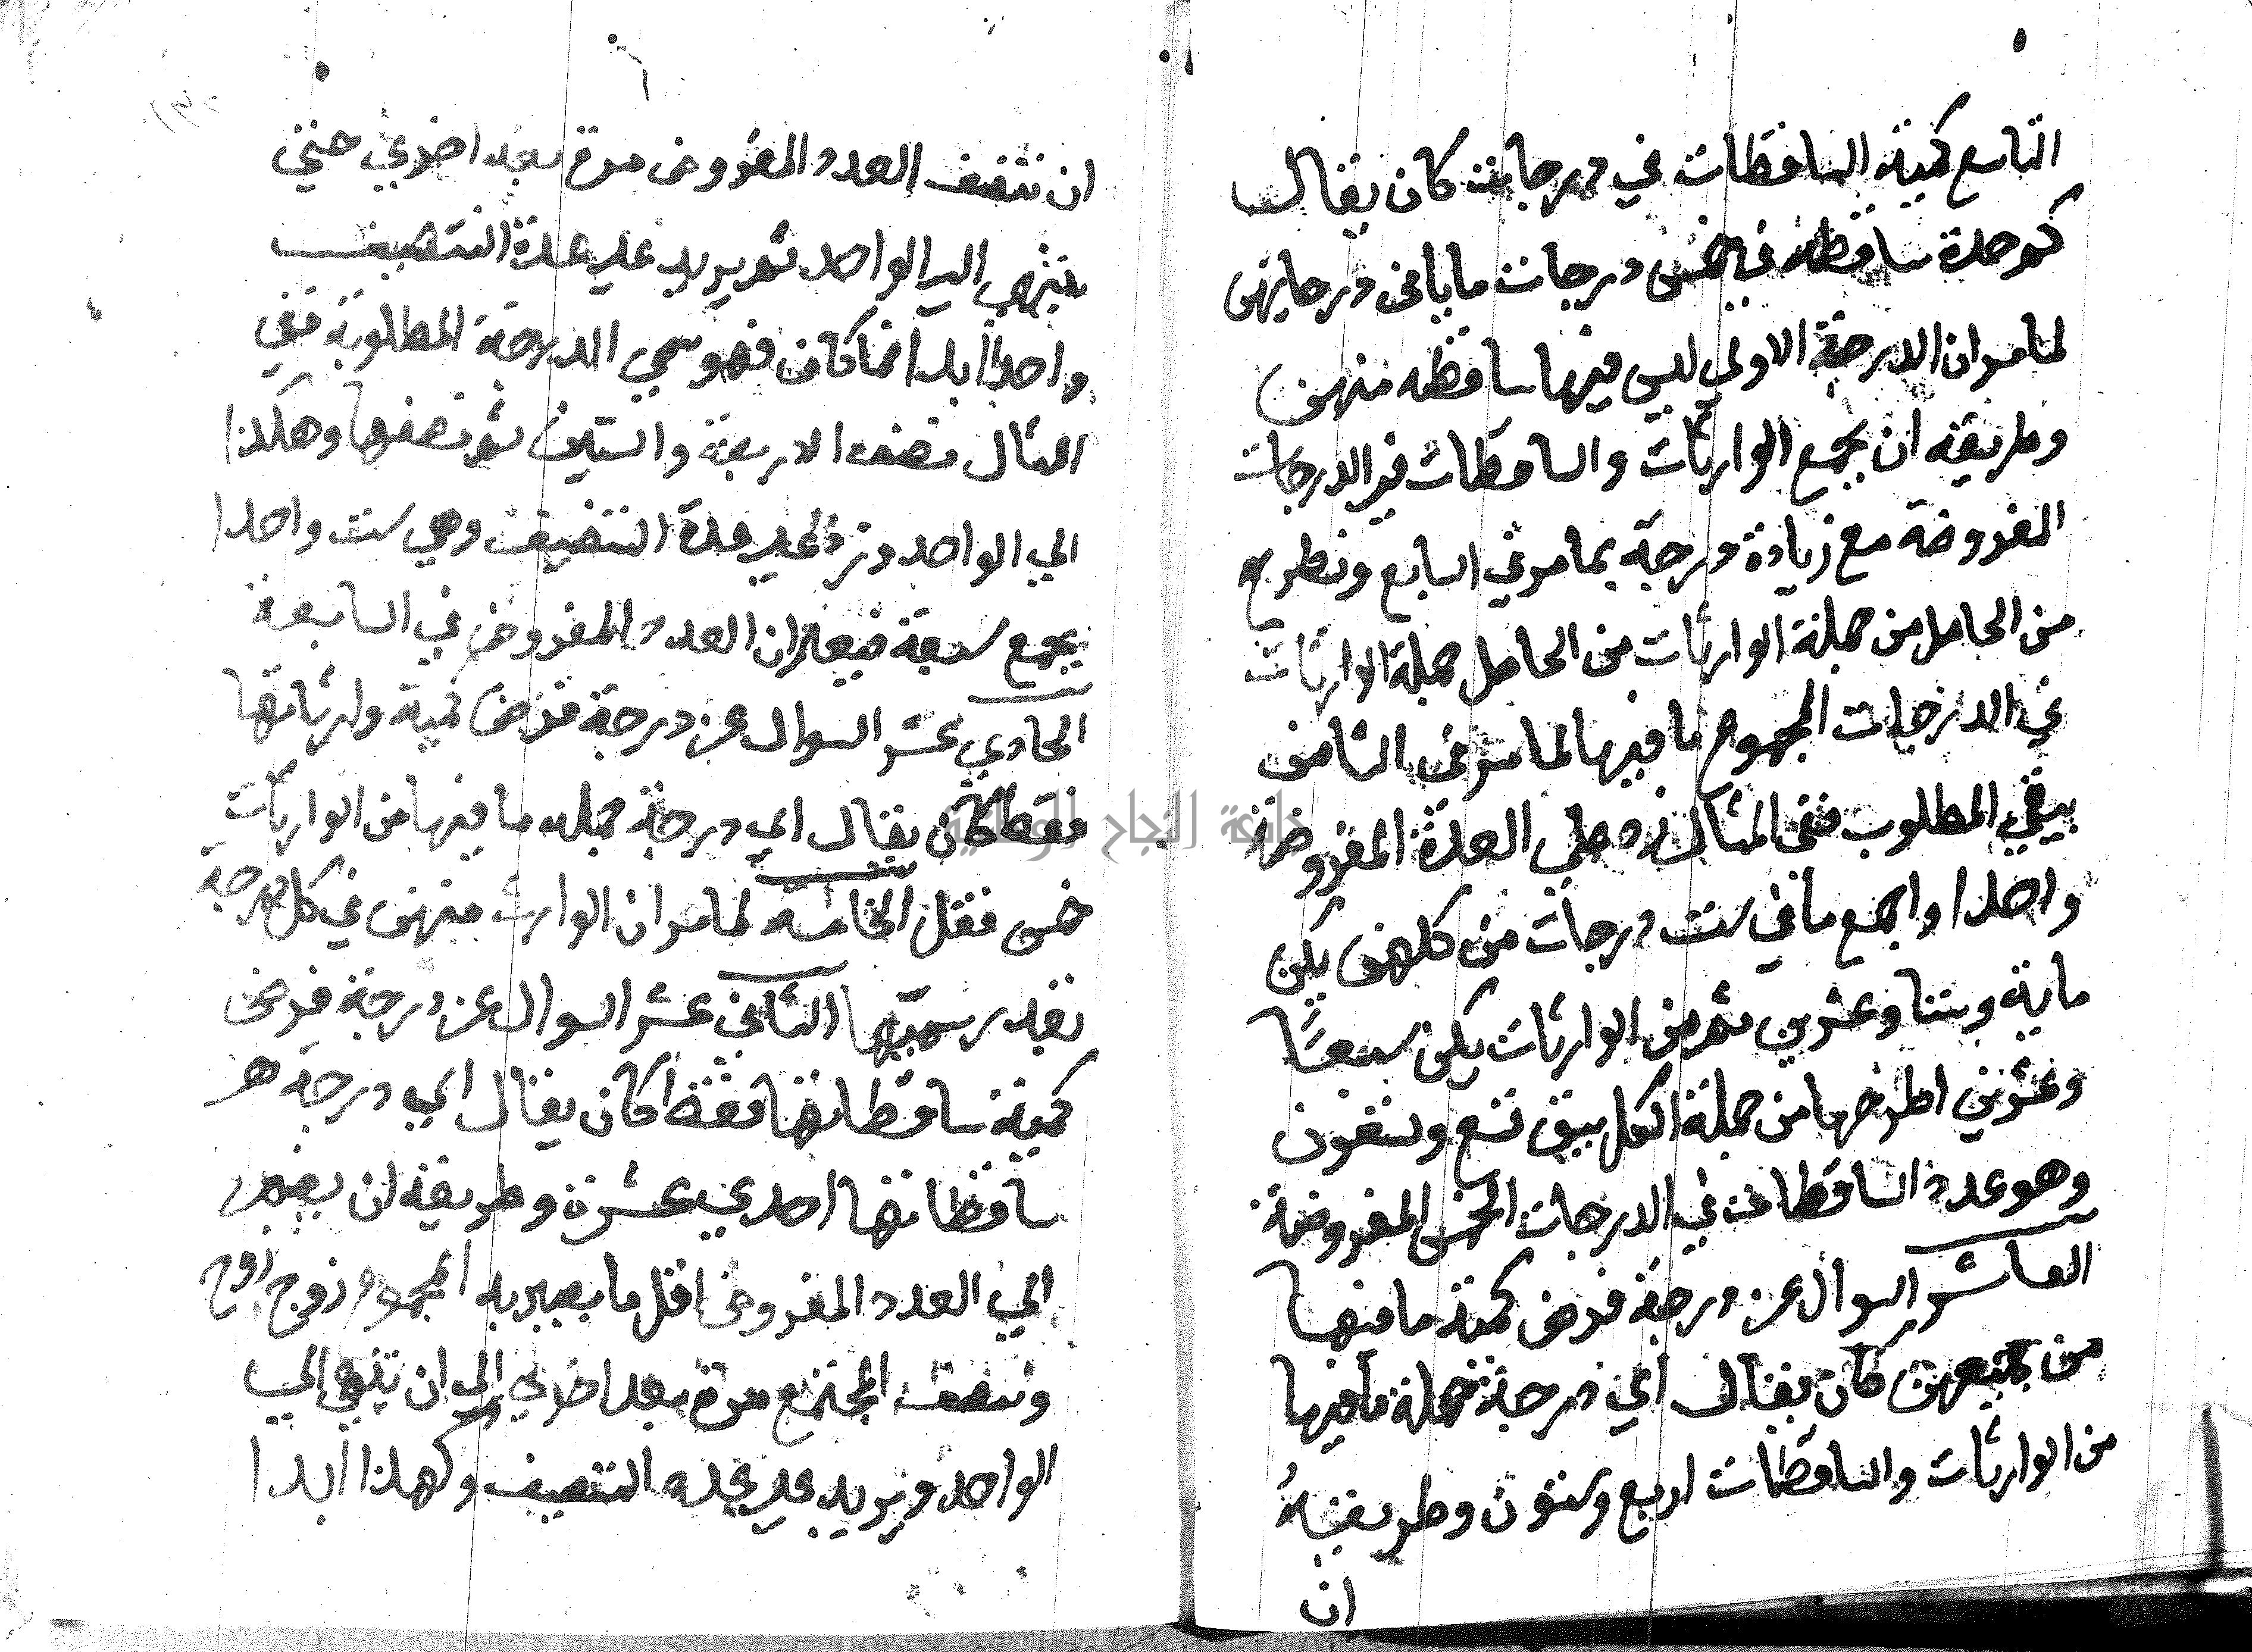 التاسع كمية الساقطات في درجات كان يقال
كم جدة ساقطه في خمس درجات ما باقى درجاتهن
لما مر ان الدرجة الاولي ليس فيها ساقطه منهن
وطريقه ان يجمع الوارثات والساقطات في الدرجات
المفروضة مع زيادة درجة بما مر في السابع ونطرح
من الحاصل من جملة الوارثات من الحاصل جملة الوارثات
في الدرجات المجموع ما فيها لما مر في الثامن
يبقي المطلوب ففى المثال زد علي العدة المفروضة
واحدا واجمع ما في ست درجات من كلهن يكن
ماية وستا وعشرين ثم من الوارثات يكن سبعًا
وعشرين اطرحها من جملة الكل يبق تسع وتسعون
وهو عدد الساقطات في الدرجات الخمس المفروضة
العاشر السوال عن درجة فرض كمية ما فيها
من جميعهن كان يقال اي درجة جملة ما فيها
من الوارثات والساقطات اربع وستون وطريقته
ان
ان تنصف العدد المفروض مرة بعد اخري حتي
ينتهي الي الواحد ثم يزيد علي عدة التنصيف
واحدا ابدا فما كان فهو سمي الدرجة المطلوبة ففي
المثال نصف الاربعة والستين ثم نصفها وهكذا
الي الواحد وزد علي عدة التنصيف وهي ست واحدا
يجمع سبعة فيعلم ان العدد المفروض في السابعة
الحادي عشر السوال عن درجة فرض كمية وارثاتها
فقط كان يقال اي درجة جمله ما فيها من الوارثات
خمس فقل الخامسه لما مر ان الوارث منهن في كل درجة
بقدر سميها الثاني عشر السوال عن درجة فرض
كمية ساقطاتها فقط كان يقال اي درجة هـ
ساقطاتها احدي عشرة وطريقة ان يضم
الي العدد المفروض اقل ما يصير به المجموع زوج زوج
وتنصف المجتمع مرة بعد اخري الي ان ينتهي الي
الواحد ويزيد علي عده التنصيف وكهذا ابدا